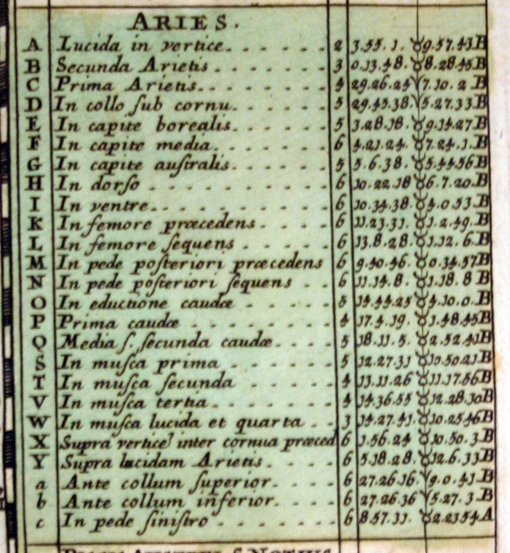 ARIES.
A Lucida in vertice 2 3.55.1. ♉ 9.57.43 B
B Secunda Arietis 3 0.13.48. ♉ 8.28.45 B
C Prima Arietis 4 29.26.24 ♈ 7.10.2 B
D In collo ſub cornu 5 29.45.38. ♈ 5.27.33 B
E In capite borealis 5 3.28.18. ♉ 9.14.27 B
F In capite media 6 4.21.24. ♉ 7.24.1. B
G In capite auſtralis 5 5.6.38. ♉ 5.44.56 B
H In dorſo 6 10.22.18 ♉ 6.7.20. B
I In ventre 6 10.34.38. ♉ 4.0.53 B
K In femore præcedens 6 11.23.31. ♉ 1.2.49. B
L In femore ſequens 6 13.8.28. ♉ 1.12.6. B
M In pede poſteriori præcedens 6 9.40.46. ♉ 0.34.57 B
N In pede poſteriori ſequens 6 11.14.8. ♉ 1.18.8 B
O In eductione caudæ 5 14.44.25 ♉ 4.10.0. B
P Prima caudæ 4 17.4.19. ♉ 1.48.45 B
Q Media ſ. ſecunda caudæ 5 18.11.5. ♉ 2.52.41 B
S In muſca prima 5 12.27.31 ♉ 10.50.21 B
T In muſca ſecunda 4 13.11.26 ♉ 11.17.56 B
V In muſca tertia 4 14.36.55 ♉ 12.28.30 B
W In muſca lucida et quarta 3 14.27.41. ♉ 10.25.46 B
X Supra vertice inter cornua præced 6 1.56.24 ♉ 10.50.3. B
Y Supra lucidam Arietis 6 5.18.28. ♉ 12.6.33 B
a Ante collum ſuperior 6 27.26.16. ♈ 9.0.41 B
b Ante collum inferior 6 27.26.36 ♈ 5.27.3 B
c In pede ſiniſtro 6 8.57.31. ♉ 2.23.54 A